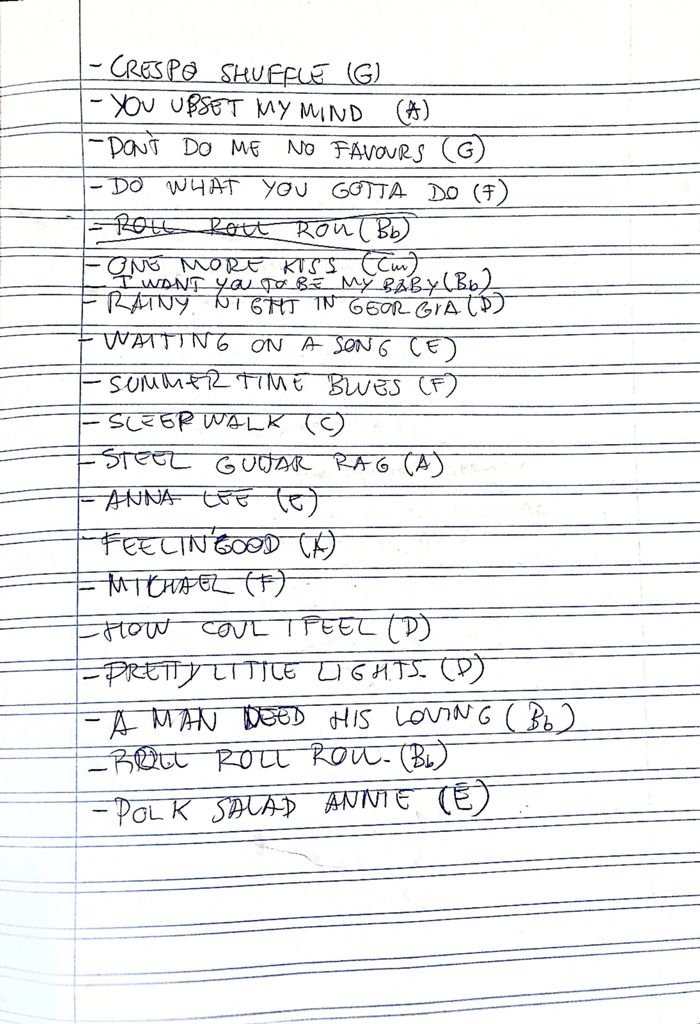 - CRESPO SHUFFLE (G)
- YOU UPSET MY MIND (A)
- DON'T DO ME NO FAVOURS (G)
- DO WHAT YOU GOTTA DO (F)
- ROLL ROLL ROLL (Bb)
- ONE MORE KISS (Cm)
- I WANT YOU TO BE MY BABY (Bb)
- RAINY NIGHT IN GEORGIA (D)
- WAITING ON A SONG (E)
- SUMMERTIME BLUES (F)
- SLEEPWALK (C)
- STEEL GUITAR RAG (A)
- ANNA LEE (E)
- FEELIN' GOOD (A)
- MICHAEL (F)
- HOW COUL I FEEL (D)
- PRETTY LITTLE LIGHTS (D)
- A MAN NEED HIS LOVING (Bb)
- ROLL ROLL ROLL. (Bb)
- POLK SALAD ANNIE (E)